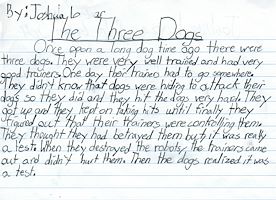 By: Joshua, Lo
The Three Dogs
Once apon a long dog time ago there were
three dogs. They were very well trained and had very
good trainers. One day their trainers had to go somewhere.
They didn't know that dogs were hiding to attack their
dogs so they did and they hit the dogs very hard. They
got up and they kept on taking hits until finally they
figured out that their trainers were controlling them.
They thought they had betrayed them but it was really
a test. when they destroyed the robots, the trainers came
out and didn't hurt them. Then the dogs realized it was
a test.